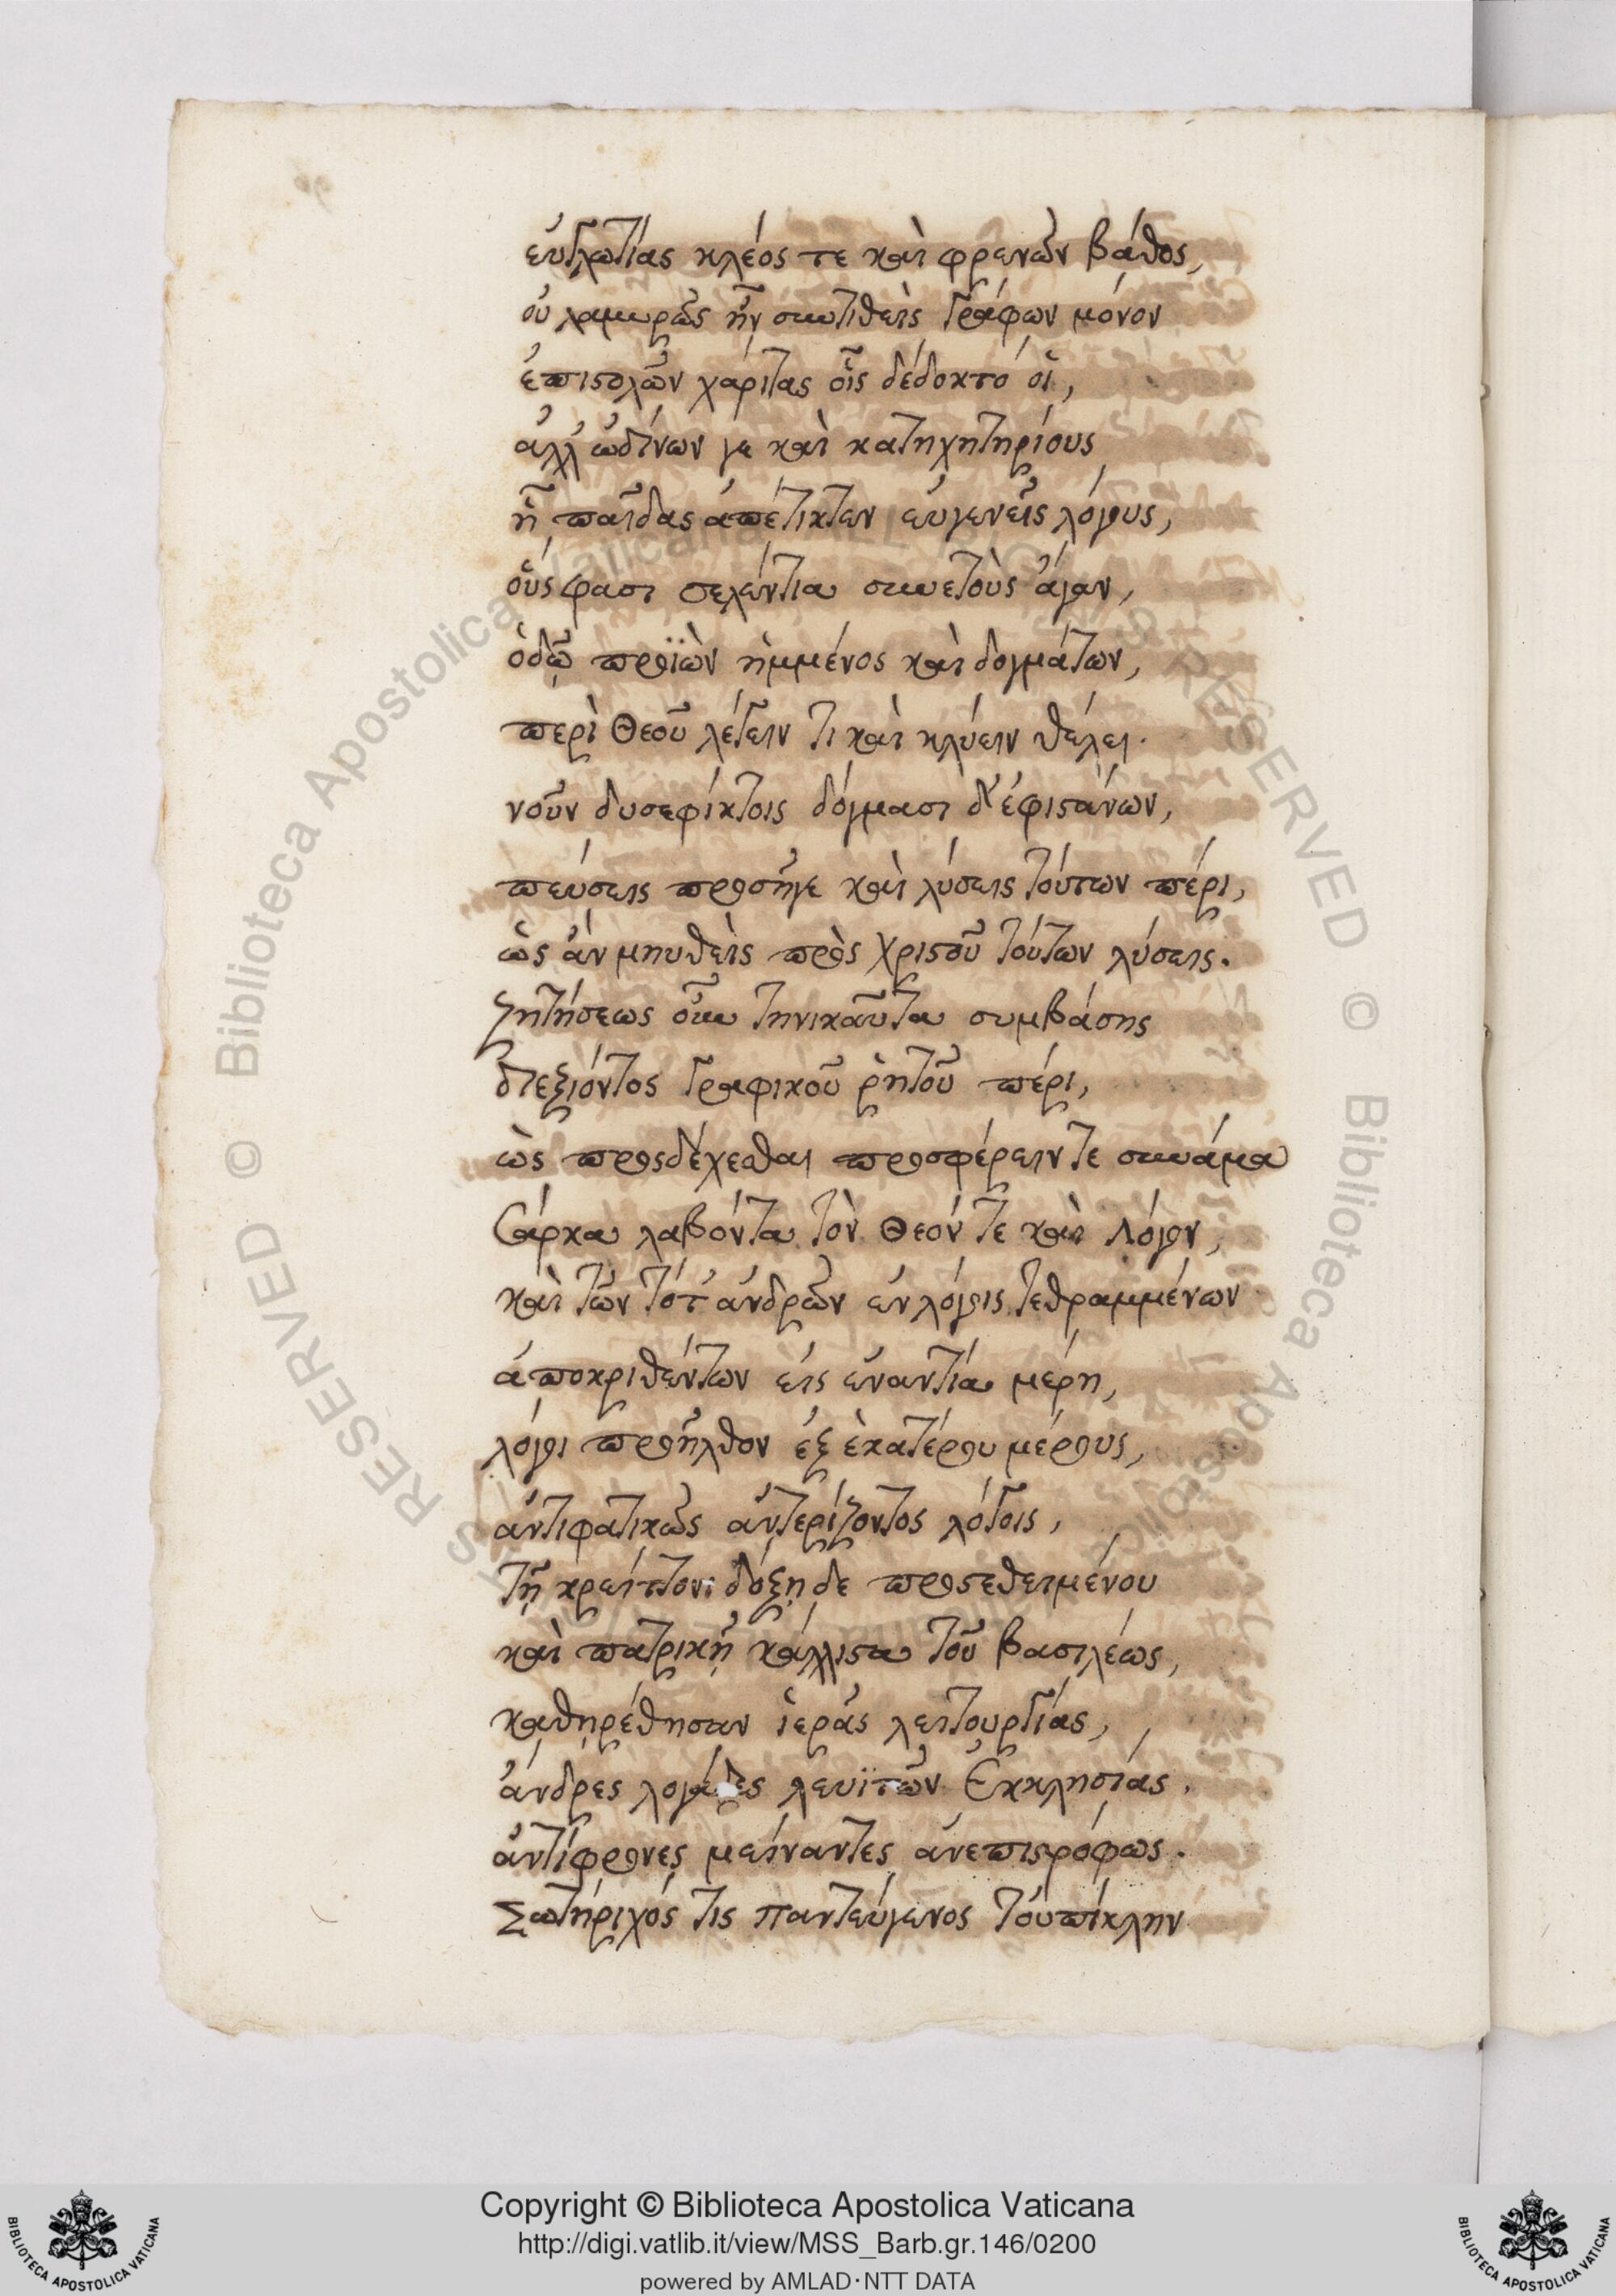 εὐγλωττίας κλέος τε καὶ φρενῶν βάθος,
οὐ λαμυρῶς ἦν συντιθεὶς γράφων μόνον
ἐπιστολῶν χάριτας οἷς δέδοκτό οἱ,
ἀλλ' ὠδίνων γε καὶ κατηχητηρίους
ἢ παῖδας ἀπέτικτεν εὐγενεῖς λόγους,
οὕς φασι σελέντια συνετοὺς ἄγαν,
ὁδῷ προϊὼν ἡμμένος καὶ δογμάτων,
περὶ Θεοῦ λέγειν τι καὶ κλύειν θέλει.
νοῦν δυσεφίκτοις δόγμασι δ' ἐφιστάνων,
πεύσεις προσῆγε καὶ λύσεις τούτων πέρι,
ὡς ἂν μηυθεὶς πρὸς Χριστοῦ τούτων λύσεις.
ζητήσεως οὖν τηνικαῦτα συμβάσης
διεξιόντος γραφικοῦ ῥητοῦ πέρι,
ὡς προσδέχεσθαι προσφέρειν τε συνάμα
Σάρκα λαβόντα τὸν Θεόν τε καὶ Λόγον,
καὶ τῶν τότ' ἀνδρῶν ἐν λόγοις τεθραμμένων
ἀποκριθέντων εἰς ἐναντία μέρη,
λόγοι προῆλθον ἐξ ἑκατέρου μέρους,
ἀντιφατικῶς ἀντερίζοντος λόγοις,
τῇ κρείττονι δόξῃ δε προστεθειμένου
καὶ πατρικῇ κάλλιστα τοῦ βασιλέως,
καθῃρέθησαν ἱερᾶς λειτουργίας,
ἄνδρες λογάδες λευϊτῶν Ἐκκλησίας.
ἀντίφρονες μείναντες ἀνεπιστρόφως.
Σωτήριχός τις Παντεύγενος τοὐπίκλην
Copyright © Biblioteca Apostolica Vaticana
http://digi.vatlib.it/view/MSS_Barb.gr.146/0200
powered by AMLAD·NTT DATA